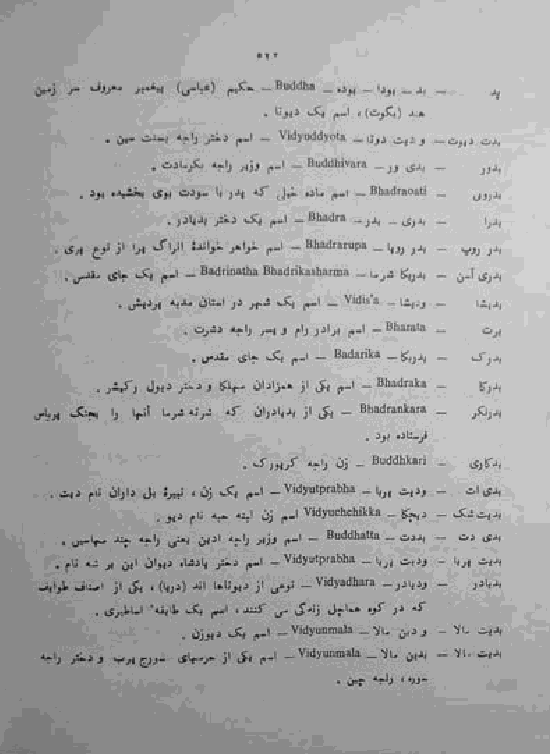 بد — بد — بودا — بوده — Buddha — حکیم (عباسی) پیغمبر معروف سر زمین
هند (بگوت)، اسم یک دیوتا .
بدت دیوت — و دیت دوتا — Vidyoddyota — اسم دختر راجه بست حین .
بدور — بدی ور — Buddhivara — اسم وزیر راجه بکرمادت .
بدروی — Bhadraoati — اسم ماده فیلی که پدر با سودت بوی بخشیده بود .
بدرا — بدری — بدر — Bhadra — اسم یک دختر بدیادر .
بدر روپ — بدر روپا — Bhadrarupa — اسم خواهر خواندهٔ انراگ پرا از نوع پری .
بدری آسن — بدریکا شرما — Badrinatha Bhadrikasharma — اسم یک جای مقدس .
بدیشا — ودیشا — Vidis'a — اسم یک شهر در استان مدیه پردیش .
برت — Bharata — اسم برادر رام و پسر راجه دشرت .
بدرک — بدریکا — Badarika — اسم یک جای مقدس .
بدرکا — Bhadraka — اسم یکی از همزادان مهلکا و دختر دیول رکهشر .
بدرنکر — Bhadrankara — یکی از بدیادران که شرته شرما آنها را بجنگ پرباس
فرستاده بود .
بدکاری — Buddhkari — زن راجه کرپورک .
بدی ات — ودیت پربا — Vidyutprabha — اسم یک زن، نبیرهٔ بل داوان نام دیت .
بدیت شک — دیچکا — Vidyuchchikka اسم زن لیته جبه نام دیو .
بدی دت — بددت — Buddhatta — اسم وزیر راجه ادین یعنی راجه چند مهاسین .
بدیت پربا — ودیت پربا — Vidyutprabha — اسم دختر پادشاه دیوان این بر تبه نام .
بدیادر — ودیادر — Vidyadhara — نوعی از دیوتاها اند (دریا)، یکی از اصناف طوایف
که در کوه هماچل زندگی می کنند، اسم یک طایفه اساطیری .
بدیت مالا — و دین مالا — Vidyunmala — اسم یک دیوزن .
بدیت مالا — بدین مالا — Vidyunmala — اسم یکی از حرمهای سورج پرب و دختر راجه
سروه، راجه چین .